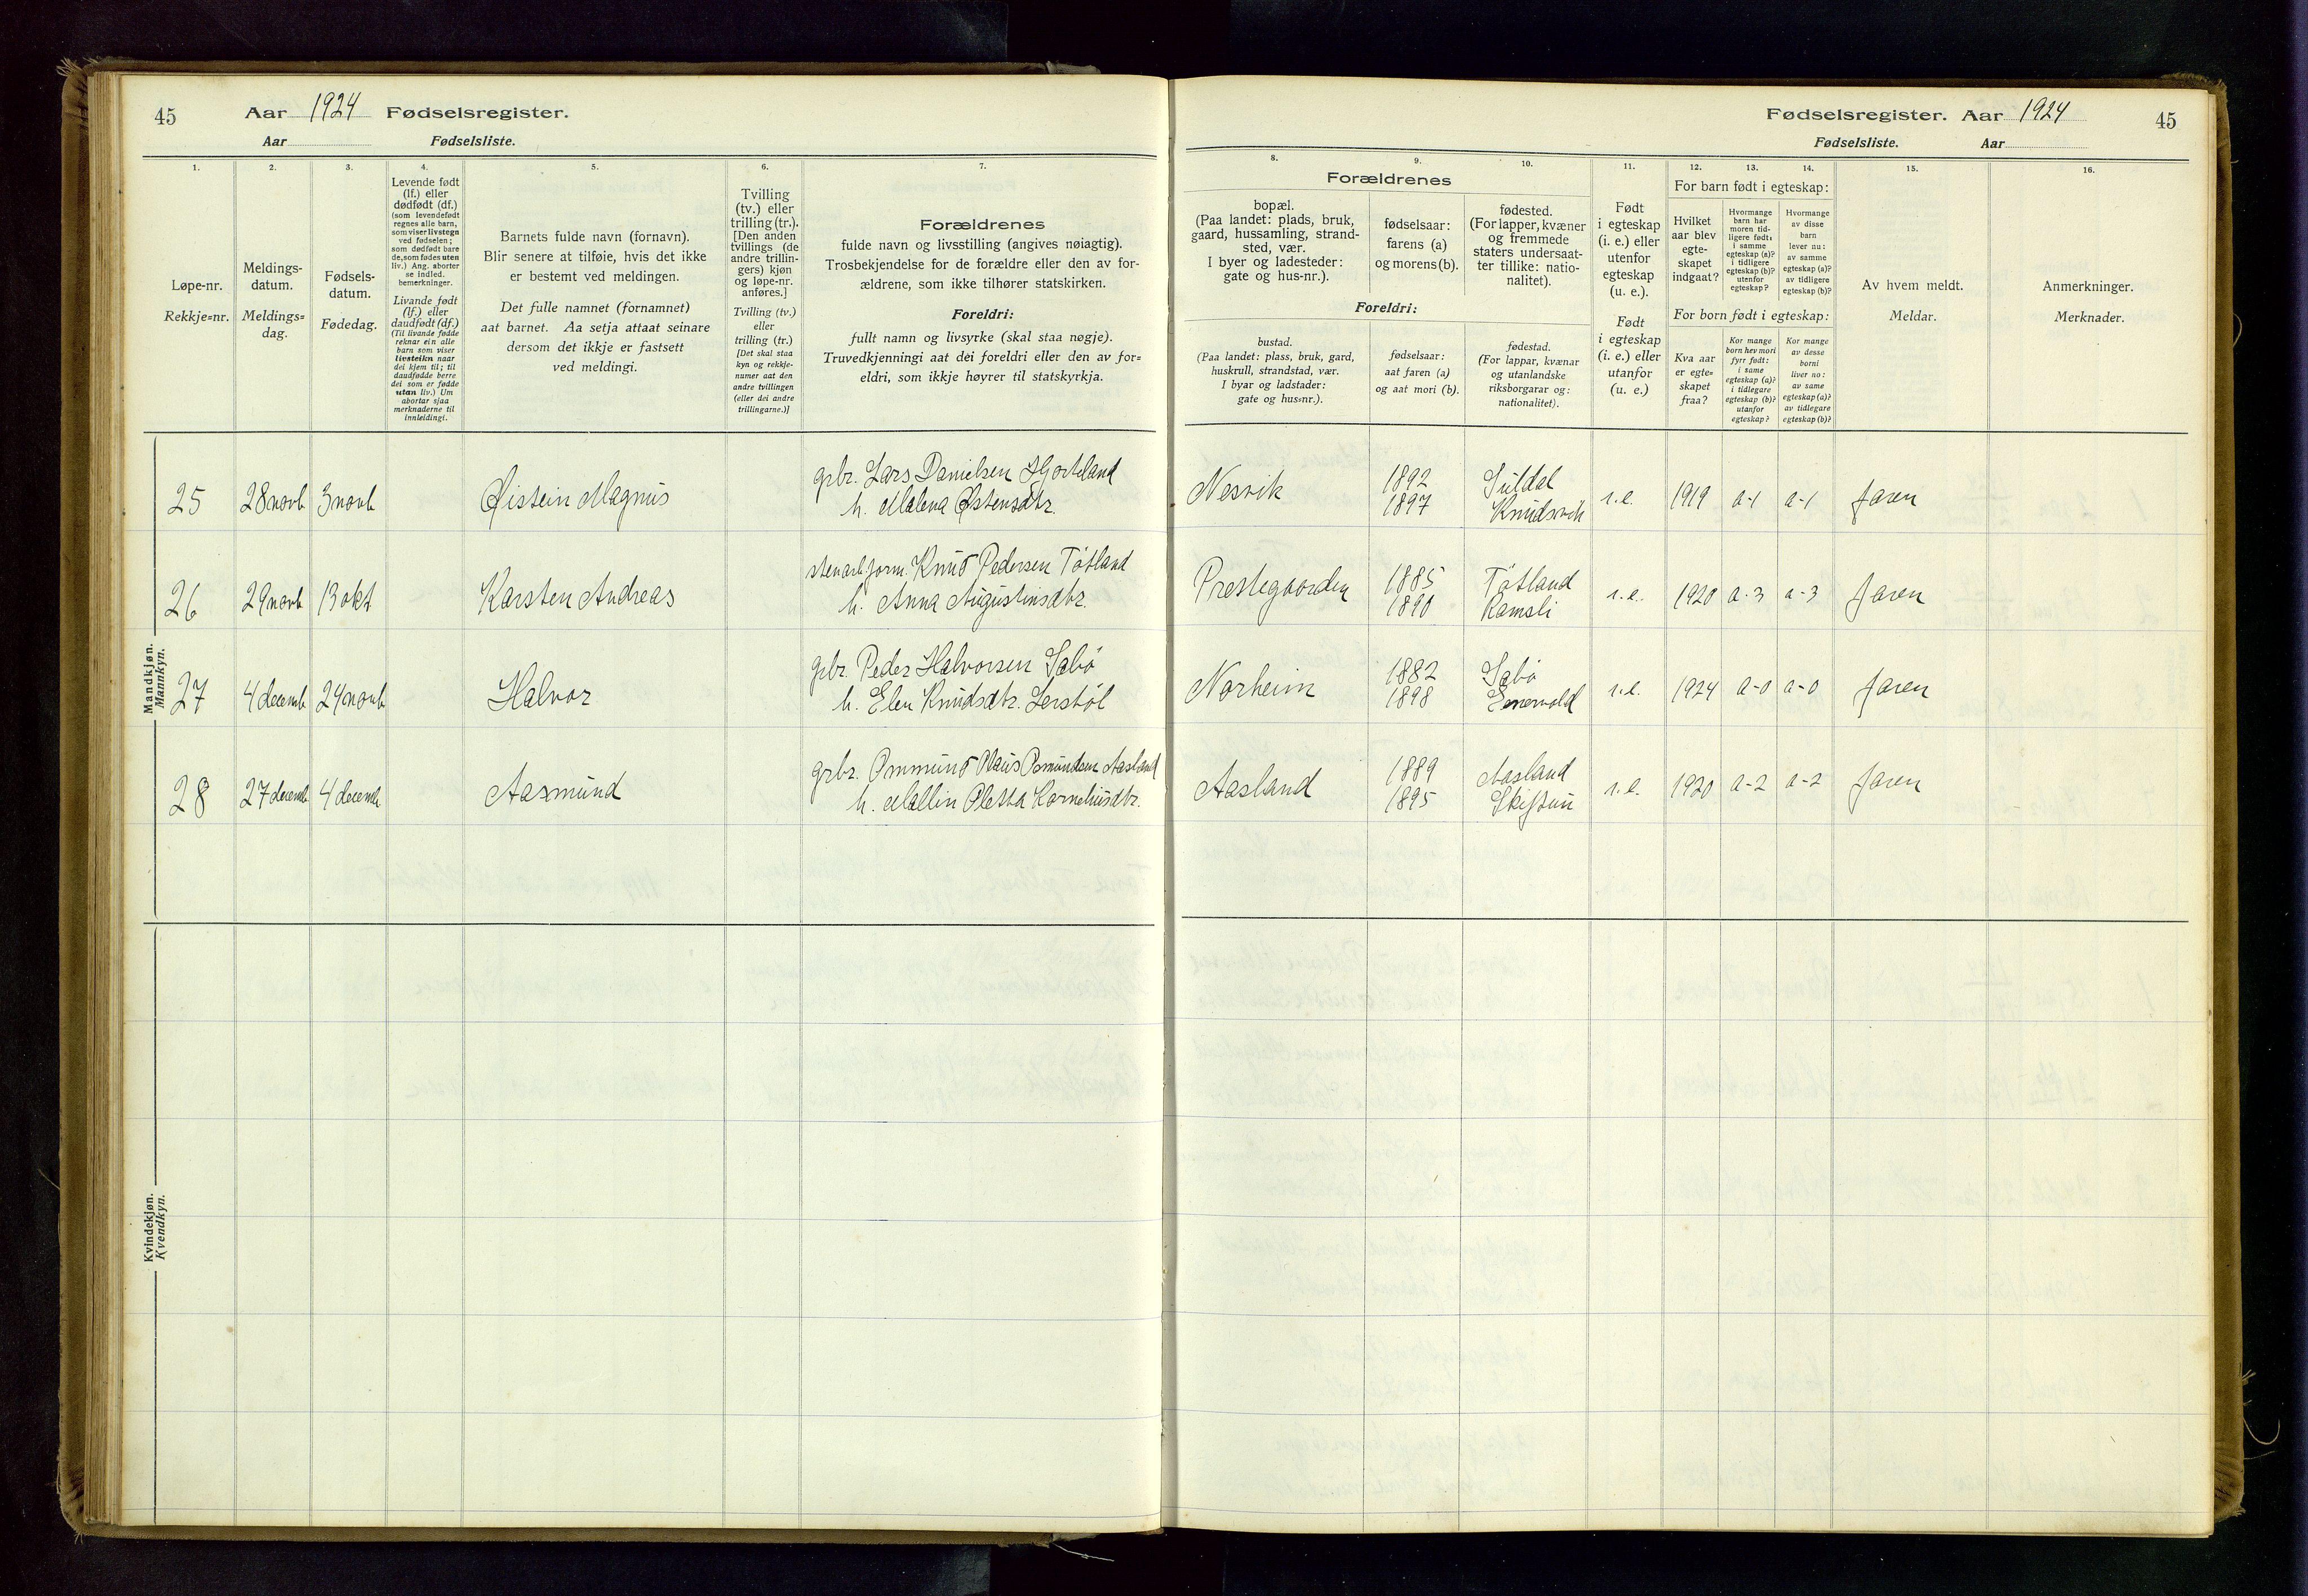 45
Aar 1924 Fødselsregister.
Aar Fødselsliste.
1.
2.
3.
4.
5.
6.
7.
Løpe-nr.
Rekkje=nr.
Meldings-
datum.
Meldings=
dag.
Fødsels-
datum.
Fødedag.
Levende født
(lf.) eller
dødfødt (df.)
(som levendefødt
regnes alle barn,
som viser livstegn
ved fødselen;
som dødfødt bare
de, som fødes uten
liv.) Ang. aborter
se indled.
bemerkninger.
Livande født
(lf.) eller
daudfødt (df.)
(Til livande fødde
reknar ein alle
barn som viser
livsteikn naar
dei kjem til; til
daudfødde berre
dei som er fødde
utan liv.) Um
abortar sjaa
merknaderne til
innleidingi.
Barnets fulde navn (fornavn).
Blir senere at tilføie, hvis det ikke
er bestemt ved meldingen.
Det fulle namnet (fornamnet)
aat barnet. Aa setja attaat seinare
dersom det ikkje er fastsett
ved meldingi.
Tvilling
(tv.) eller
trilling (tr.).
[Den anden
tvillings (de
andre trillin-
gers) kjøn
og løpe-nr.
anføres.]
Tvilling (tv.)
eller
trilling (tr.)
[Det skal staa
kyn og rekkje-
numer aat den
andre tvillingen
(eller dei andre
trillingarne.)]
Forældrenes
fulde navn og livsstilling (angives nøiagtig).
Trosbekjendelse for de forældre eller den av for-
ældrene, som ikke tilhører statskirken.
Foreldri:
fullt namn og livsyrke (skal staa nøgje).
Truvedkjenningi aat dei foreldri eller den av for=
eldri, som ikkje høyrer til statskyrkja.
Mandkjøn.
Mannkyn.
25 28 novb. 3 novb. Øistein Magnus
grbr. Lars Danielsen Hjorteland
h. Malena Østensdtr.
26 29 novb. 13 okt. Karsten Andreas
stenarb.form. Knud Pedersen Tøtland
h. Anna Augustinsdtr.
27 4 decemb. 24 novb. Halvor
grbr. Peder Halvorsen Sæbø
h. Elen Knudsdtr.
28 27 decemb. 4 decemb. Aasmund
grbr. Ommund Olaus Osmundsen Aasland
h. Mallin Oletta Korneliusdtr.
Kvindekjøn.
Kvendkyn.
Fødselsregister. Aar 1924
45
Fødselsliste. Aar
8.
9.
10.
11.
12.
13.
14.
15.
16.
Forældrenes
bopæl.
(Paa landet: plads, bruk,
gaard, hussamling, strand-
sted, vær.
I byer og ladesteder:
gate og hus-nr.).
fødselsaar:
farens (a)
og morens (b).
fødested.
(For lapper, kvæner
og fremmede
staters undersaat-
ter tillike: natio-
nalitet).
Foreldri:
bustad.
(Paa landet: plass, bruk, gard,
huskrull, strandstad, vær.
I byar og ladstader:
gate og hus=nr.).
fødselsaar:
aat faren (a)
og aat mori (b).
fødestad.
(For lappar, kvænar
og utanlandske
riksborgarar og:
nationalitet).
Født
i egteskap
(i. e.) eller
utenfor
egteskap
(u. e.).
Født
i egteskap
(i. e.) eller
utanfor
(u. e.)
For barn født i egteskap:
Hvilket
aar blev
egte-
skapet
indgaat?
Hvormange
barn har
moren tid-
ligere født:
i samme
egteskap (a)?
i tidligere
egteskap (b)?
utenfor
egteskap?
Hvormange
av disse
barn
lever nu:
av samme
egteskap (a)?
av tidligere
egteskap (b)?
For born født i egteskap:
Kva aar
er egte=
skapet
fraa?
Kor mange
born hev mori
fyrr født:
i same
egteskap (a)?
i tidlegare
egteskap (b)?
utanfor
egteskap?
Kor mange
av desse
borni
liver no:
av same
egteskap (a)?
av tidlegare
egteskap (b)?
Av hvem meldt.
Meldar.
Anmerkninger.
Merknader.
Nesvik 1892 Suldal i.e. 1919 a-1 a-1 faren
1897
Prestegaarden 1885 Tøtland i.e. 1920 a-3 a-3 faren
1890 Ramsli
Norheim 1882 Sæbø i.e. 1924 a-0 a-0 faren
1898
Aasland 1889 Aasland i.e. 1920 a-2 a-2 faren
1895 Skiftun